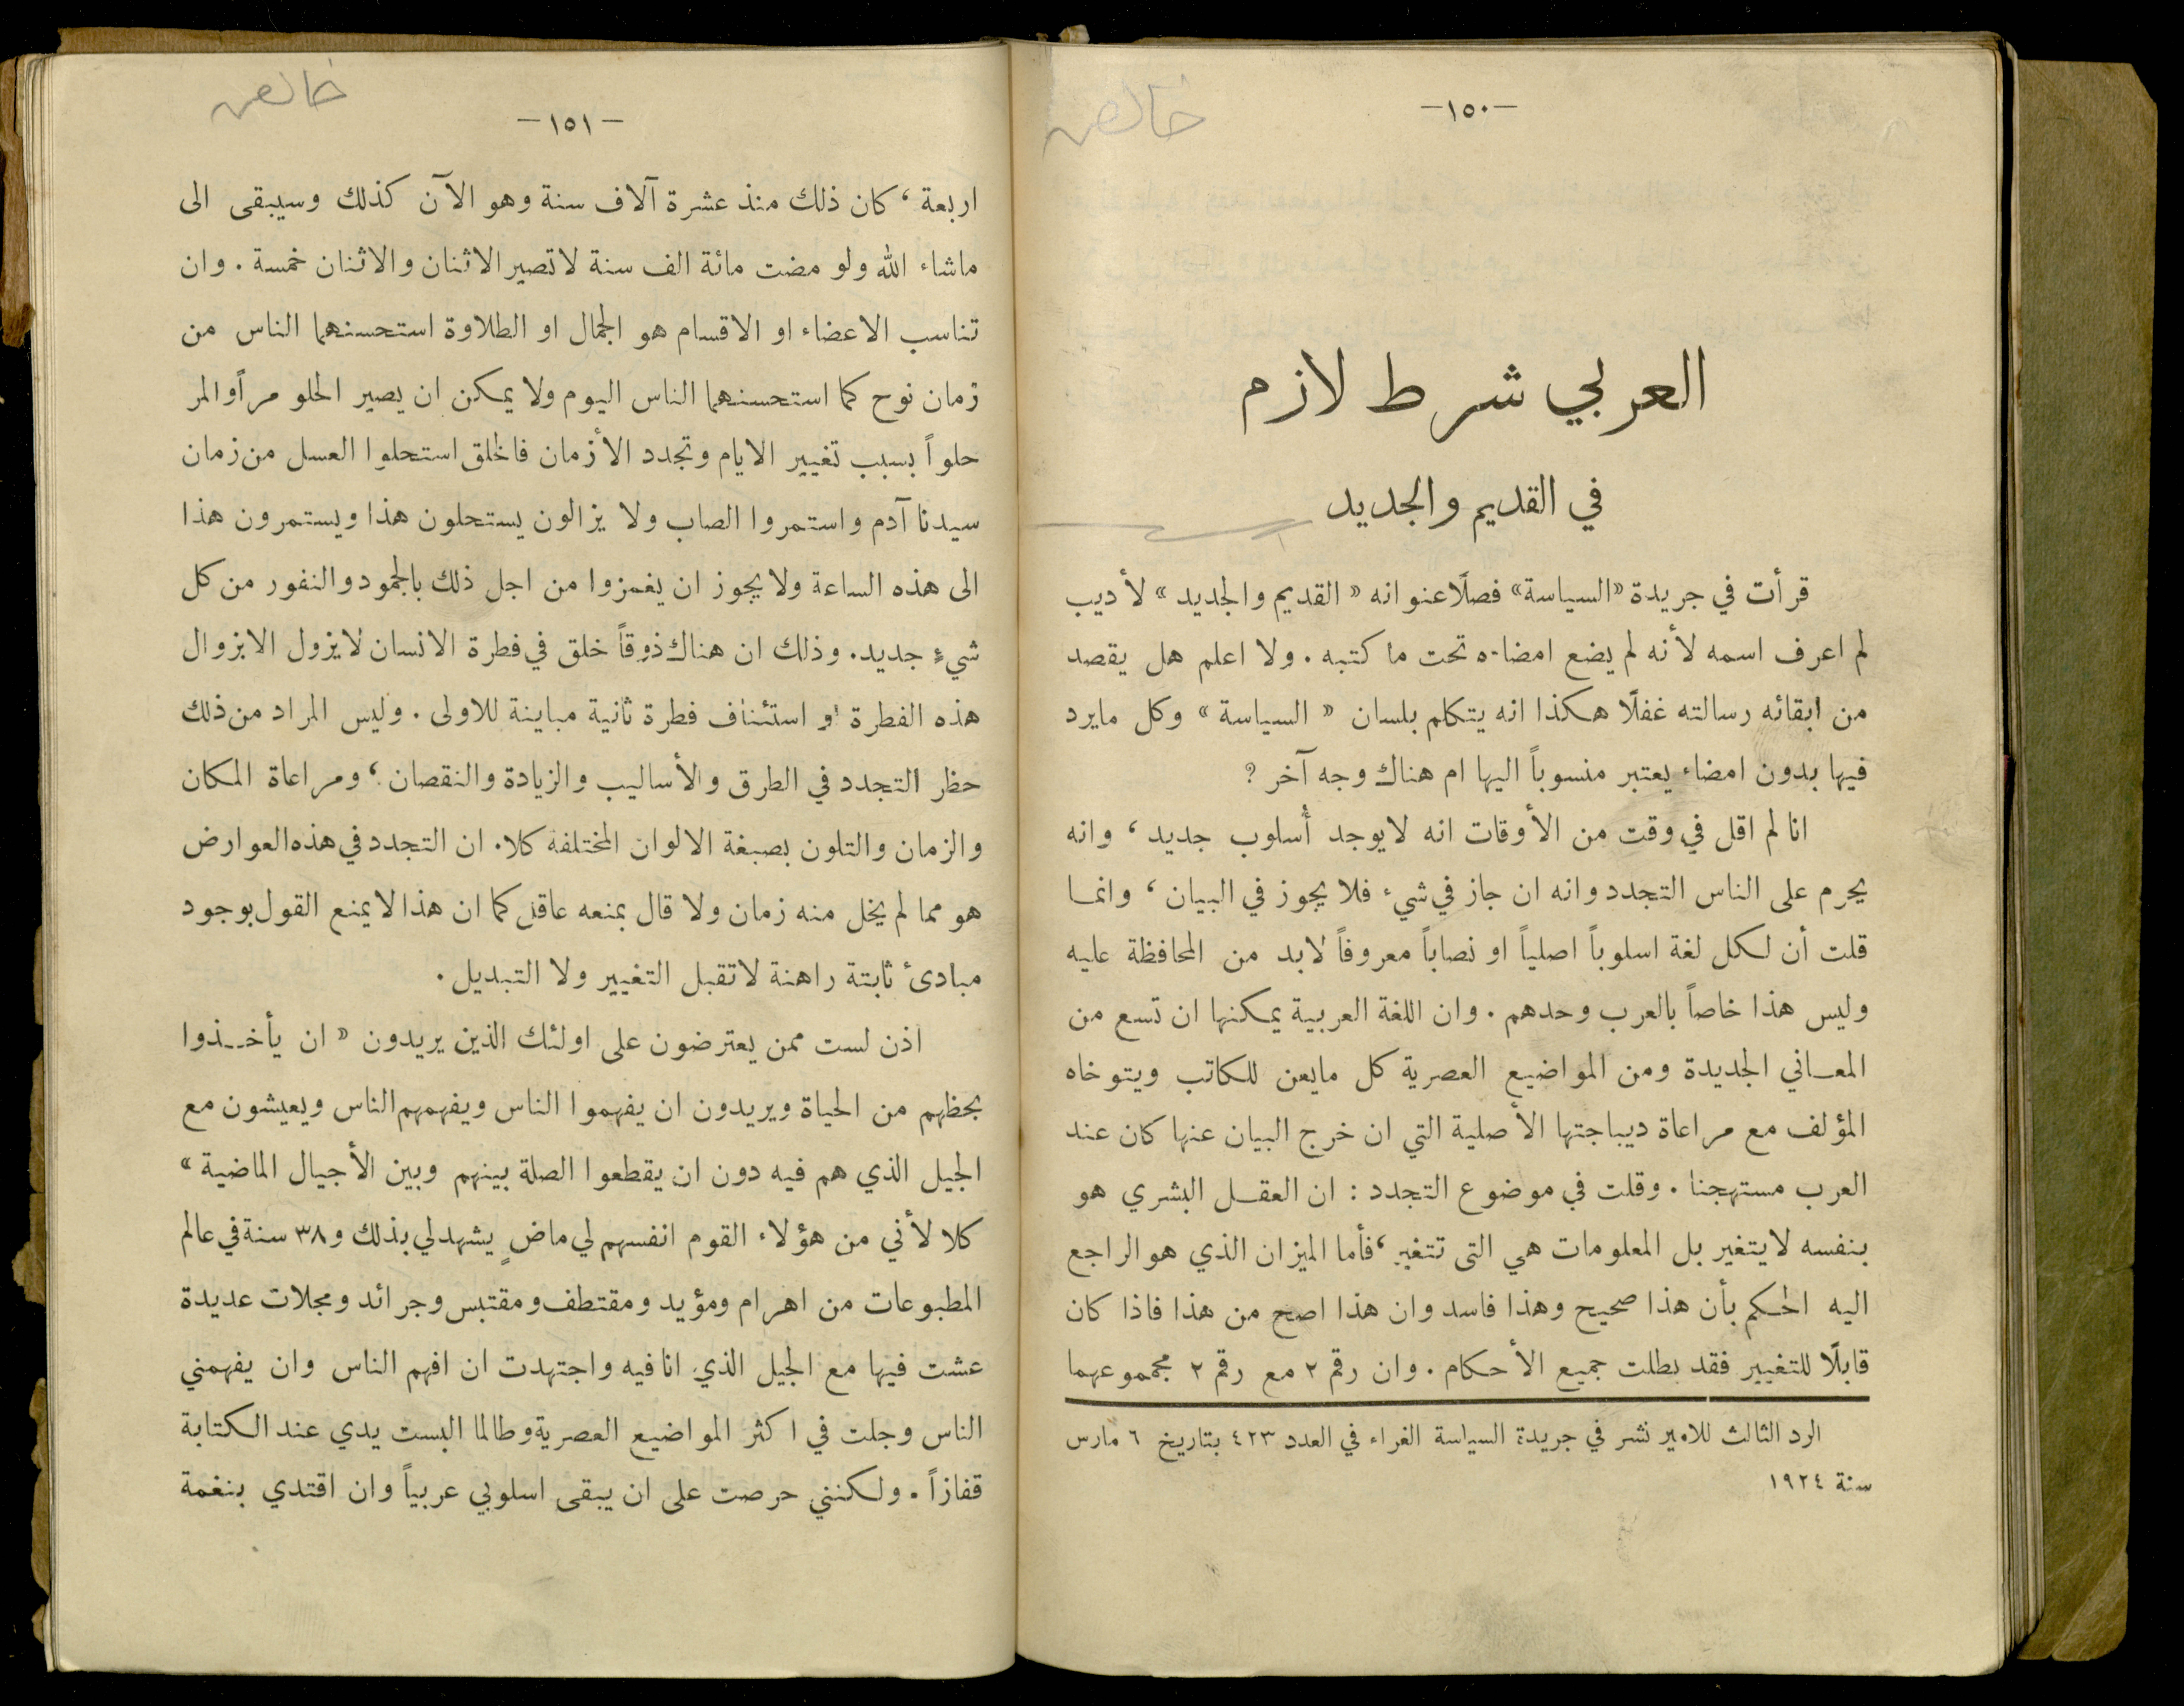 خالص
—١٥٠—
العربي شرط لازم
في القديم والجديد
قرأت في جريدة «السياسة» فصلًا عنوانه « القديم والجديد » لأديب
لم اعرف اسمه لأنه لم يضع امضاءه تحت ما كتبه . ولا اعلم هل يقصد
من ابقائه رسالته غفلًا هكذا انه يتكلم بلسان « السياسة » وكل مايرد
فيها بدون امضاء يعتبر منسوباً اليها ام هناك وجه آخر ؟
انا لم اقل في وقت من الأوقات انه لايوجد أسلوب جديد ، وانه
يحرم على الناس التجدد وانه ان جاز في شيء فلا يجوز في البيان ، وانما
قلت أن لكل لغة اسلوباً اصلياً او نصاباً معروفاً لابد من المحافظة عليه
وليس هذا خاصاً بالعرب وحدهم . وان اللغة العربية يمكنها ان تسع من
المعاني الجديدة ومن المواضيع العصرية كل مايعن للكاتب ويتوخاه
المؤلف مع مراعاة ديباجتها الأصلية التي ان خرج البيان عنها كان عند
العرب مستهجنا . وقلت في موضوع التجدد : ان العقل البشري هو
بنفسه لايتغير بل المعلومات هي التى تتغير ، فأما الميزان الذي هو الراجع
اليه الحكم بأن هذا صحيح وهذا فاسد وان هذا اصح من هذا فاذا كان
قابلًا للتغيير فقد بطلت جميع الأحكام . وان رقم ٢ مع رقم ٢ مجموعهما
الرد الثالث للامير نشر في جريدة السياسة الغراء في العدد ٤٢٣ بتاريخ ٦ مارس
سنة ١٩٢٤
خالص
—١٥١—
اربعة ، كان ذلك منذ عشرة آلاف سنة وهو الآن كذلك وسيبقى الى
ماشاء الله ولو مضت مائة الف سنة لاتصير الاثنان والاثنان خمسة . وان
تناسب الاعضاء او الاقسام هو الجمال او الطلاوة استحسنهما الناس من
زمان نوح كما استحسنهما الناس اليوم ولا يمكن ان يصير الحلو مراً والمر
حلواً بسبب تغيير الايام وتجدد الأزمان فالخلق استحلوا العسل من زمان
سيدنا آدم واستمروا الصاب ولا يزالون يستحلون هذا ويستمرون هذا
الى هذه الساعة ولا يجوز ان يغمزوا من اجل ذلك بالجمود والنفور من كل
شيءٍ جديد . وذلك ان هناك ذوقاً خلق في فطرة الانسان لايزول الا بزوال
هذه الفطرة او استئناف فطرة ثانية مباينة للاولى . وليس المراد من ذلك
حظر التجدد في الطرق والأساليب والزيادة والنقصان ، ومراعاة المكان
والزمان والتلون بصبغة الالوان المختلفة كلا . ان التجدد في هذه العوارض
هو مما لم يخل منه زمان ولا قال بمنعه عاقل كما ان هذا لايمنع القول بوجود
مبادئ ثابتة راهنة لاتقبل التغيير ولا التبديل .
اذن لست ممن يعترضون على اولئك الذين يريدون « ان يأخذوا
بحظهم من الحياة ويريدون ان يفهموا الناس ويفهمهم الناس ويعيشون مع
الجيل الذي هم فيه دون ان يقطعوا الصلة بينهم وبين الأجيال الماضية »
كلا لأني من هؤلاء القوم انفسهم لي ماضٍ يشهد لي بذلك و٣٨ سنة في عالم
المطبوعات من اهرام ومؤيد ومقتطف ومقتبس وجرائد ومجلات عديدة
عشت فيها مع الجيل الذي انا فيه واجتهدت ان افهم الناس وان يفهمني
الناس وجلت في اكثر المواضيع العصرية وطالما البست يدي عند الكتابة
قفازاً . ولكنني حرصت على ان يبقى اسلوبي عربياً وان اقتدي بنغمة